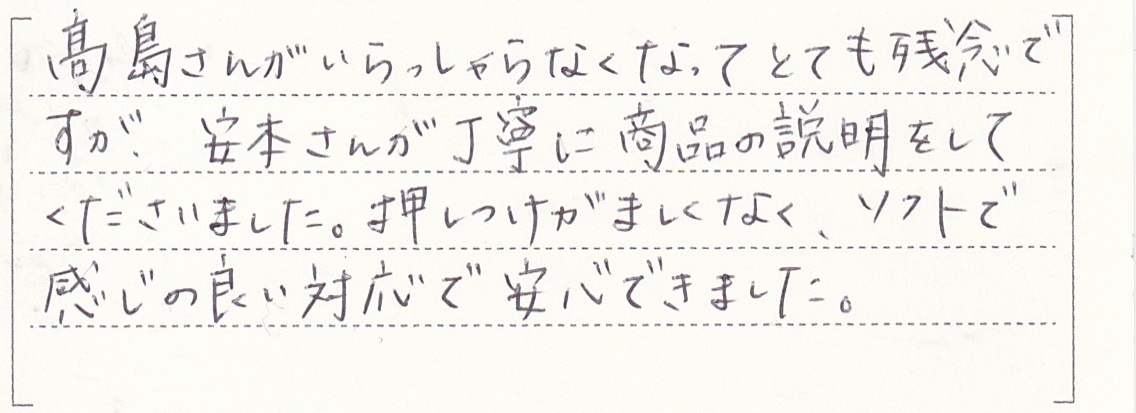 髙島さんがいらっしゃらなくなってとても残念で
すが、安本さんが丁寧に商品の説明をして
くださいました。押しつけがましくなく、ソフトで
感じの良い対応で安心できました。